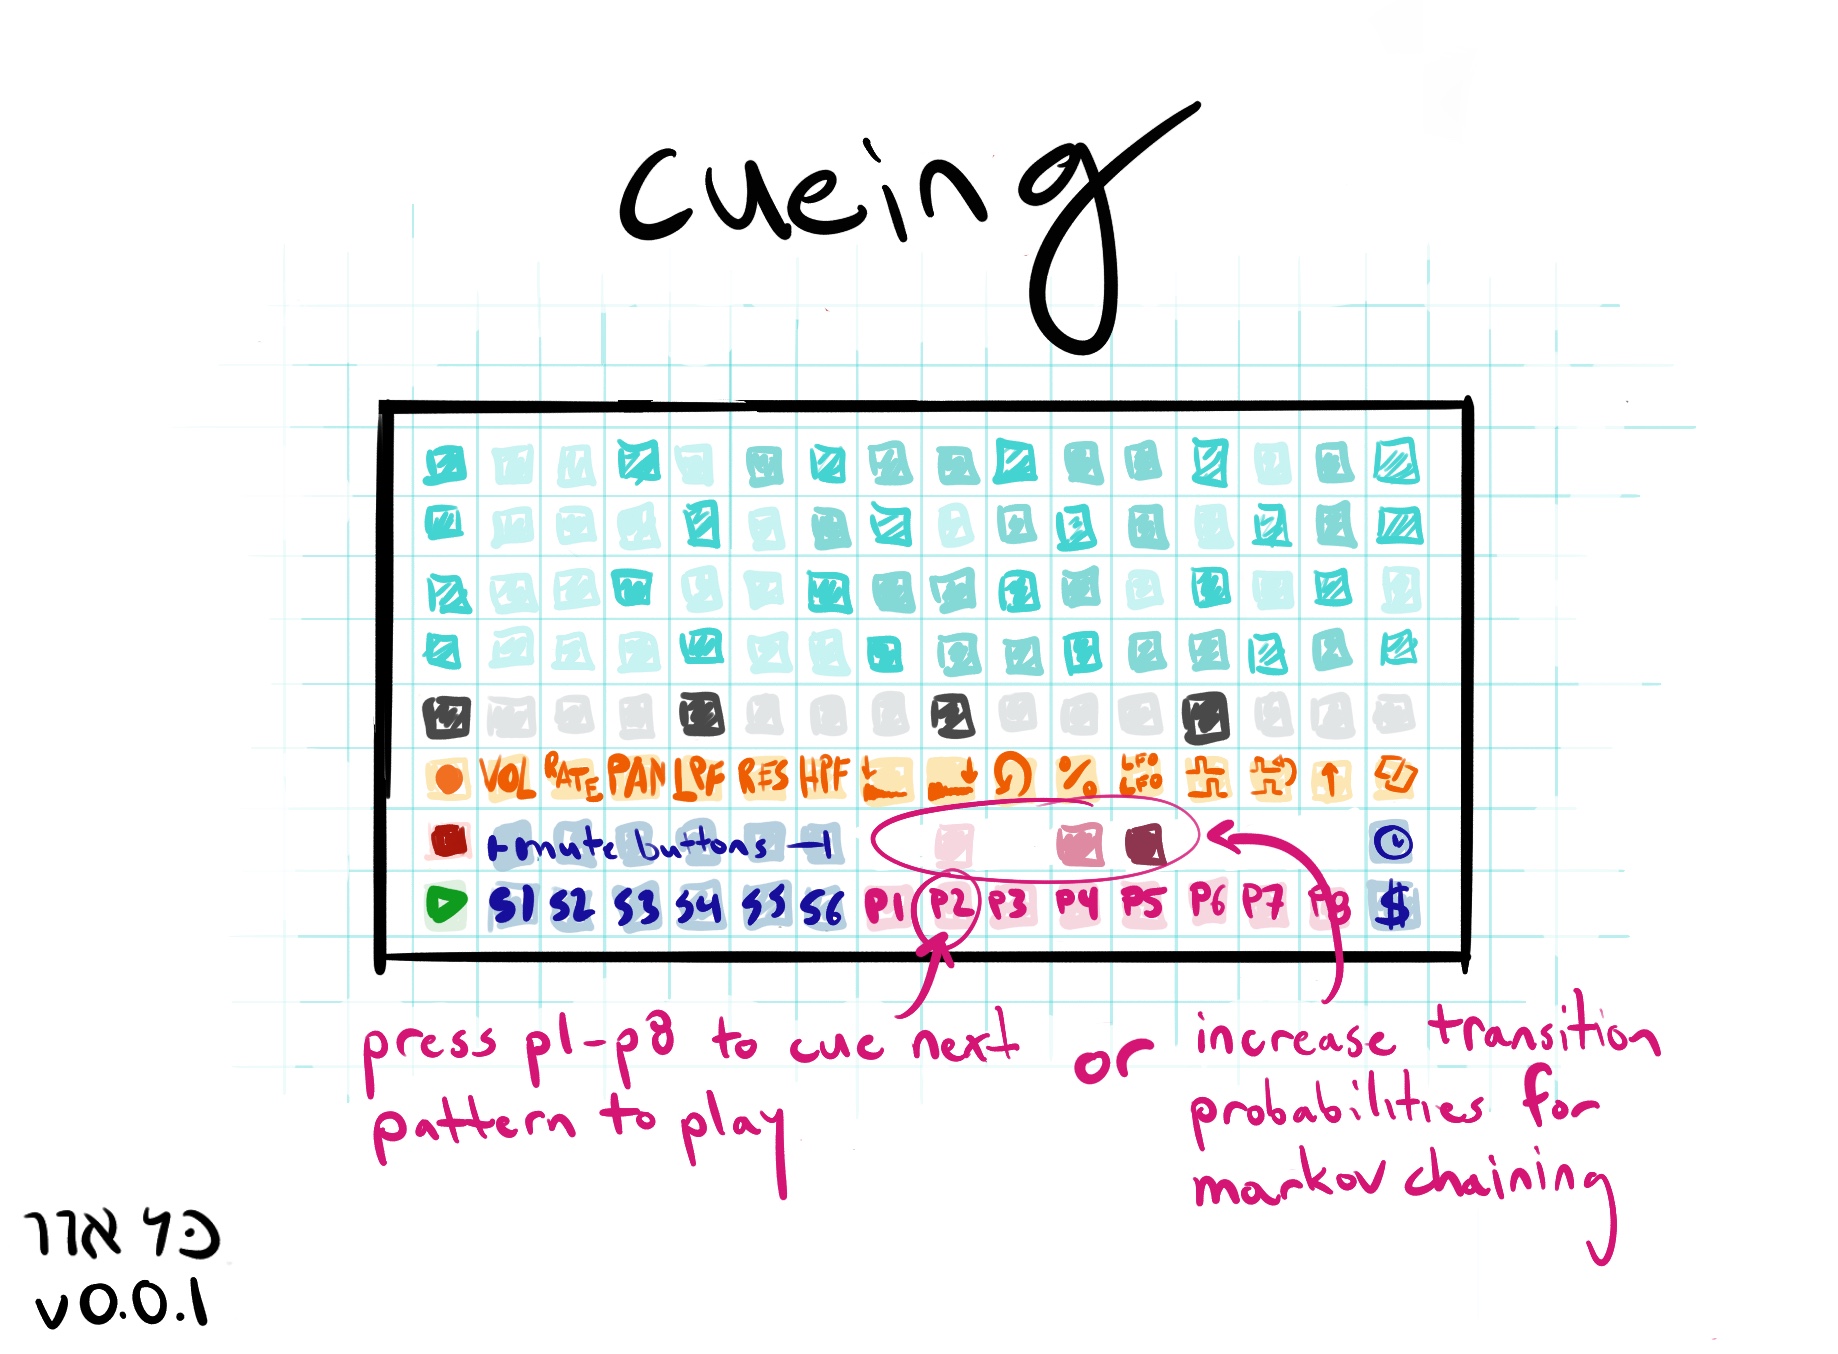 cueing
VOL RATE PAN LPF RES HPF % LFO LFO ↑
mute buttons
S1 S2 S3 S4 S5 S6 P1 P2 P3 P4 P5 P6 P7 P8 $
press p1-p8 to cue next
pattern to play
or
increase transition
probabilities for
markov chaining
כּל אור
v0.0.1